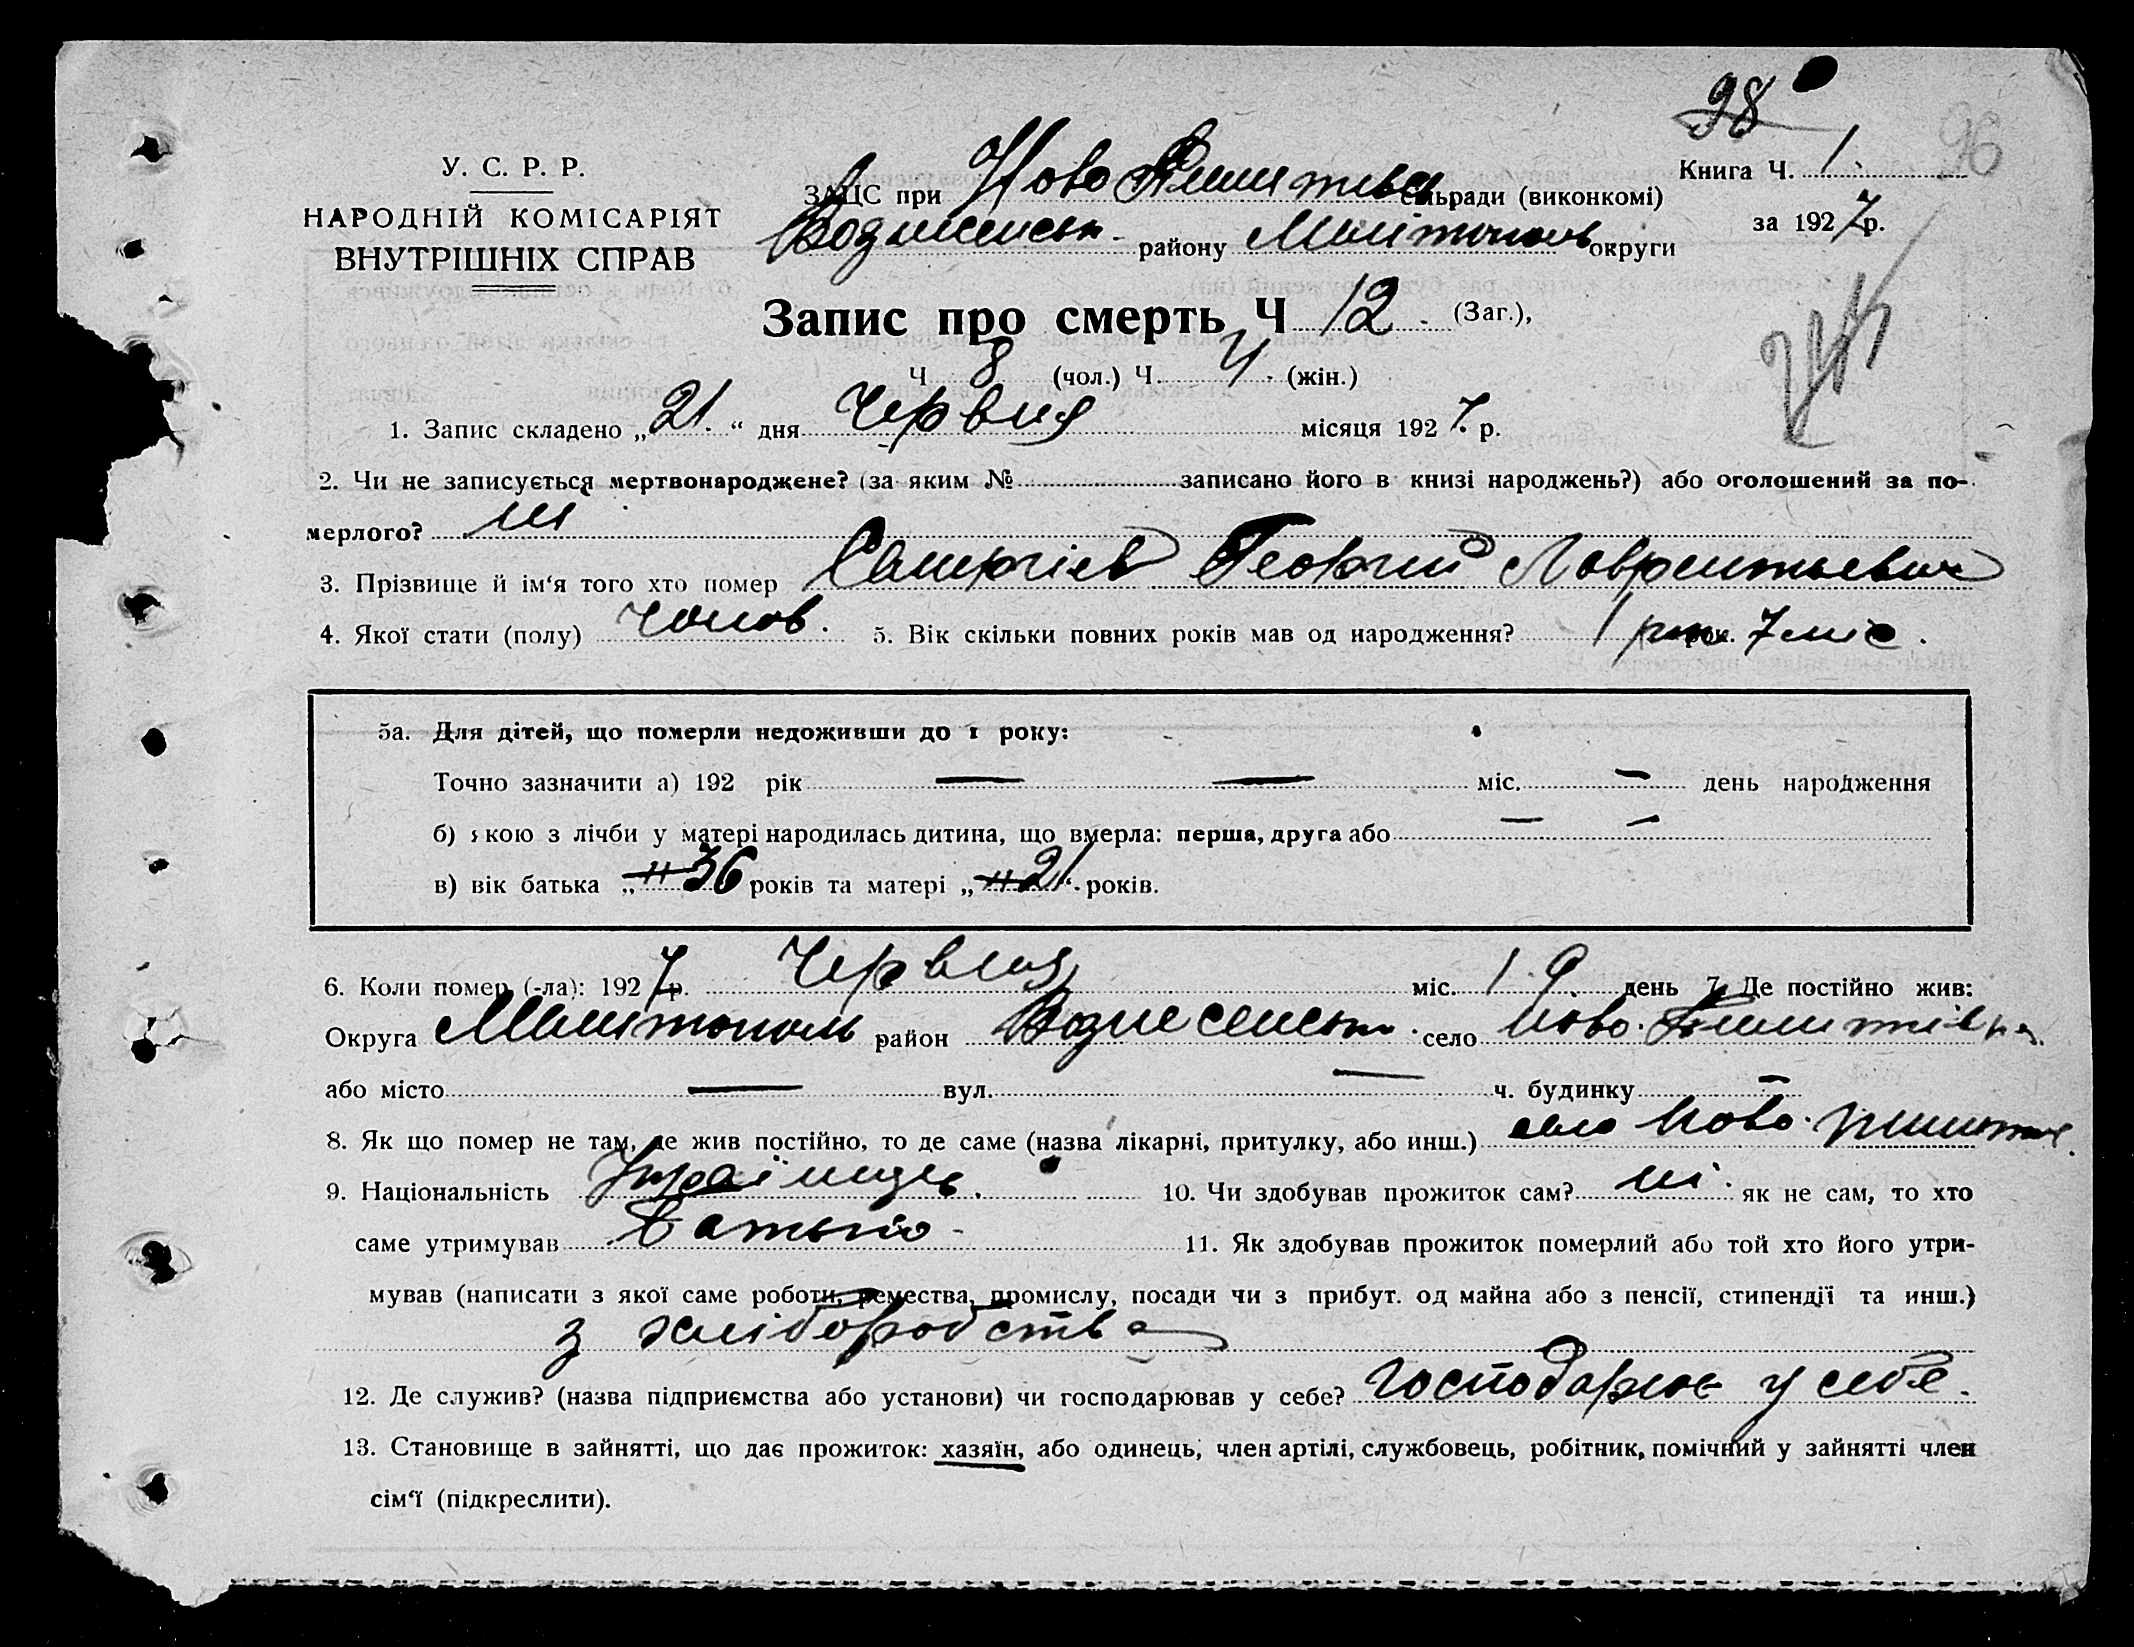 98
96
У. С. Р. Р.
НАРОДНІЙ КОМІСАРІЯТ
ВНУТРІШНІХ СПРАВ
Книга Ч. 1.
за 1927 р.
ЗАЦС при Ново сільради (виконкомі)
району Мелітополь округи
Запис про смерть Ч 12. (Заг.),
Ч 8 (чол.) Ч. 4. (жін.)
1. Запис складено „21.“ дня Червня місяця 1927. р.
2. Чи не записується мертвонароджене? (за яким № записано його в книзі народжень?) або оголошений за по-
мерлого? ні
3. Прізвище й ім‘я того хто помер Георгий Лаврентьевич
4. Якої стати (полу) чолов. 5. Вік скільки повних років мав од народження? 1 рік 7 міс.
5а. Для дітей, що померли недоживши до 1 року:
Точно зазначити а) 192 рік — — міс. — день народження
б) якою з лічби у матері народилась дитина, що вмерла: перша, друга або — —
в) вік батька „36 років та матері „21“ років.
6. Коли помер (-ла): 1927 р. Червня міс. 19. день 7. Де постійно жив:
Округа Мелітополь район Вознесенськ. село Ново.
або місто — вул. — ч. будинку —
8. Як що помер не там, де жив постійно, то де саме (назва лікарні, притулку, або инш.) село Ново.
9. Національність Українець. 10. Чи здобував прожиток сам? ні. як не сам, то хто
саме утримував Батько 11. Як здобував прожиток померлий або той хто його утри-
мував (написати з якої саме роботи, ремества, промислу, посади чи з прибут. од майна або з пенсії, стипендії та инш.)
з хліборобства
12. Де служив? (назва підприємства або установи) чи господарював у себе? господарює у себе.
13. Становище в зайнятті, що дає прожиток: хазяїн, або одинець, член артілі, службовець, робітник, помічний у зайнятті член
сім‘ї (підкреслити).